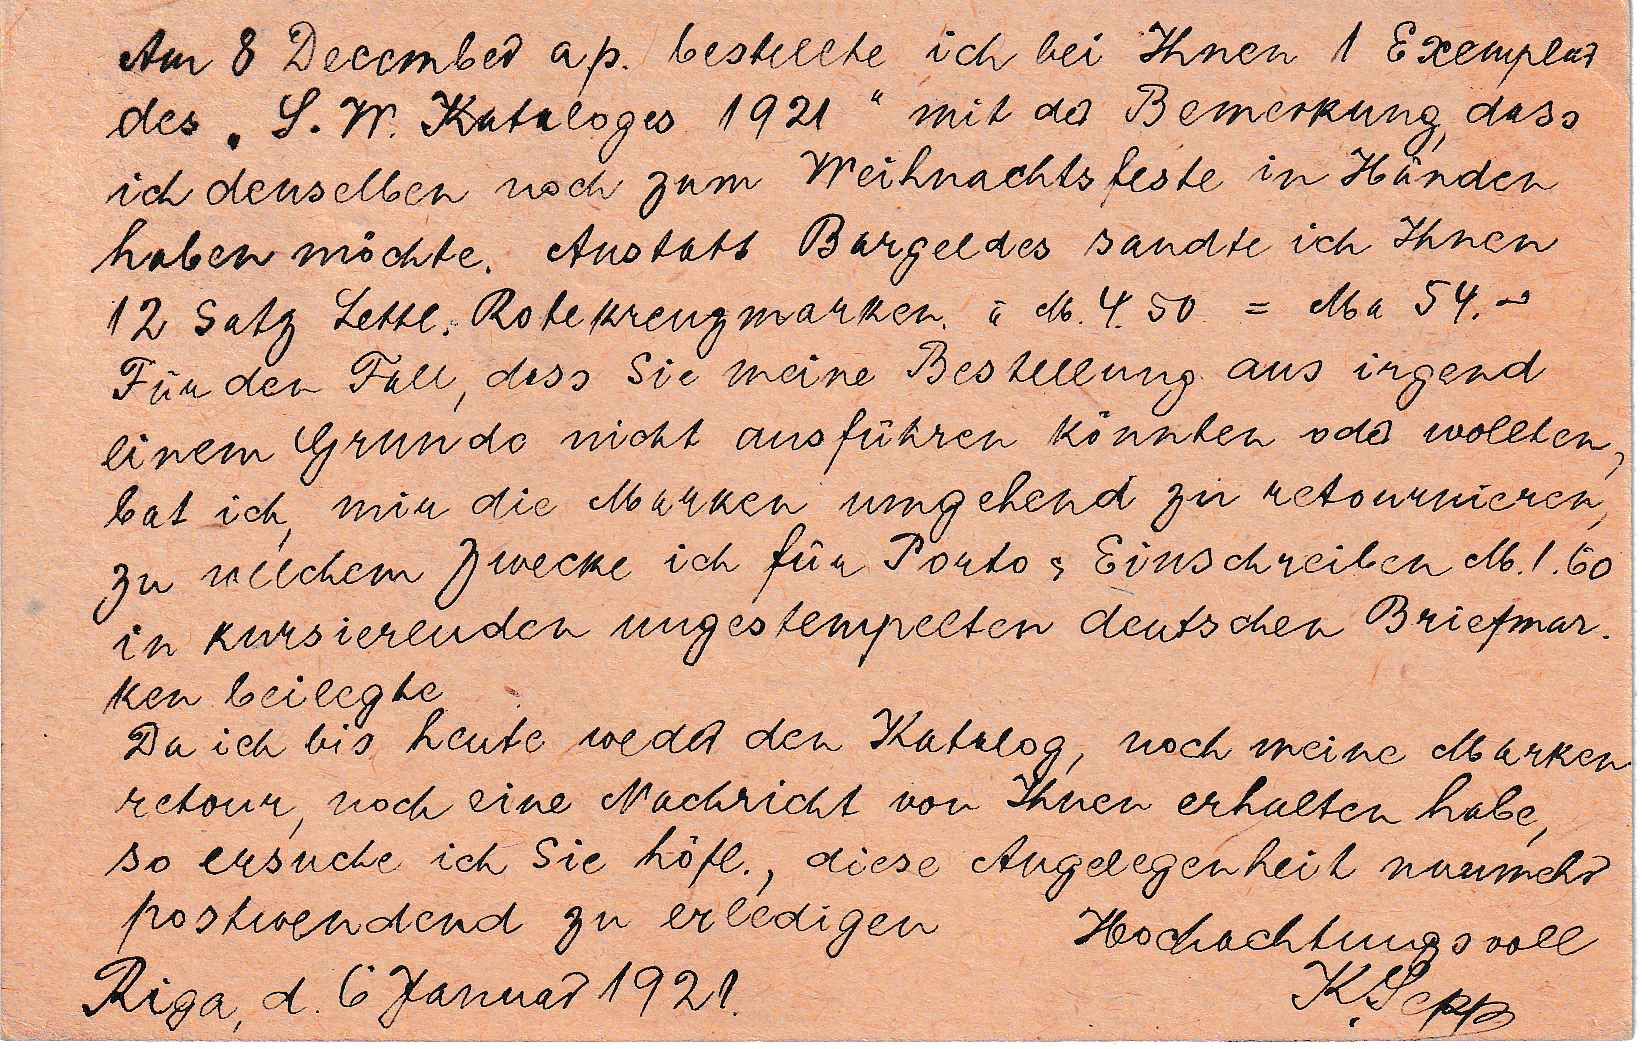 Am 8 December a.p. bestellte ich bei Ihnen 1 Exemplar
des „S. W. Kataloges 1921“ mit der Bemerkung, dass
ich denselben noch zum Weihnachtsfeste in Händen
haben möchte. Anstatt Bargeldes sandte ich Ihnen
12 Satz Lettl. Rotekreuzmarken. à M. 4.50 = Ma 54.-
Für den Fall, dass Sie meine Bestellung aus irgend
einem Grunde nicht ausführen könnten oder wollten,
bat ich, mir die Marken umgehend zu retournieren,
zu welchem Zwecke ich für Porto & Einschreiben M. 1.60
in kursierenden ungestempelten deutschen Briefmar-
ken beilegte
Da ich bis heute weder den Katalog, noch meine Marken
retour, noch eine Nachricht von Ihnen erhalten habe,
so ersuche ich Sie höfl., diese Angelegenheit nunmehr
postwendend zu erledigen Hochachtungsvoll
Riga, d. 6 Januar 1921. K. Sepp